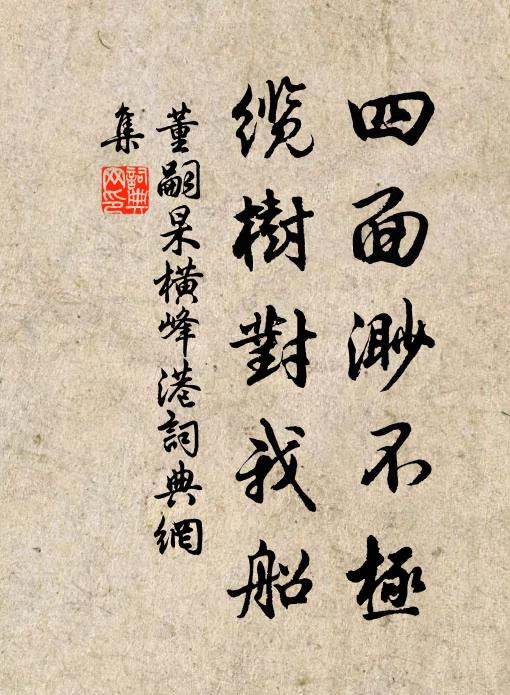 四面渺不極
纜樹對我船
董嗣杲橫峰港詞典網
集
詞典
网印